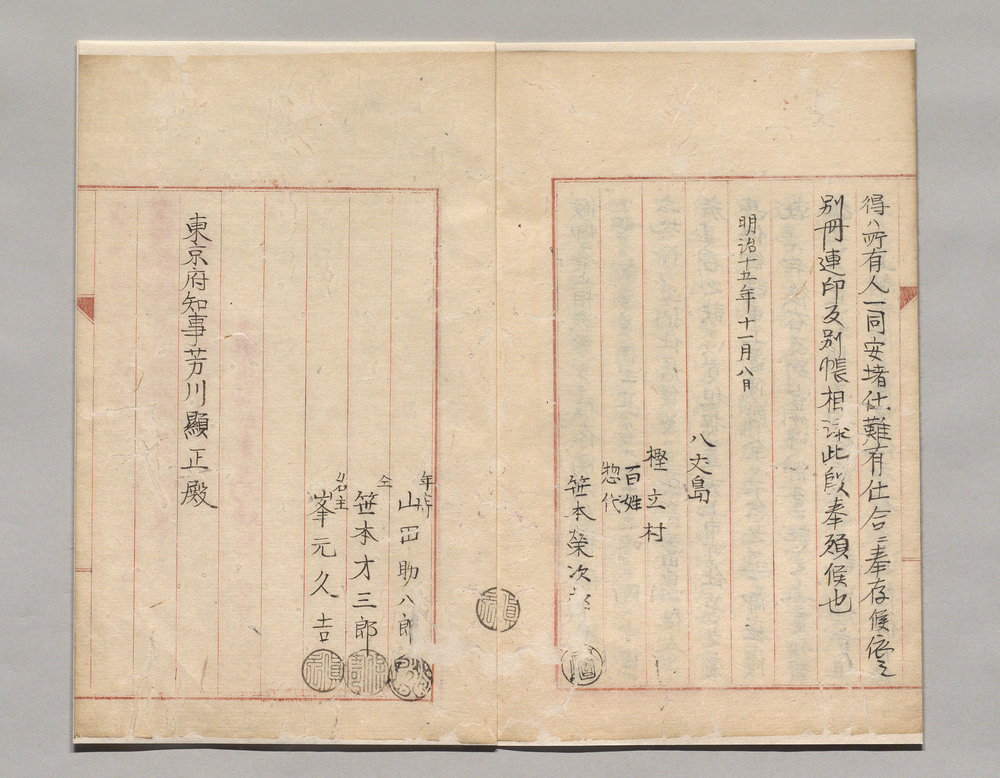 得ハ所有人一同安堵仕難有仕合ニ奉存候依之
別冊連印及別帳相添此段奉願候也
明治十五年十一月八日
八丈島
樫立村
百姓
惣代
笹本榮次郎
年寄
山田助八郎
仝
笹本才三郎
名主
峯元久吉
東京府知事芳川顯正殿